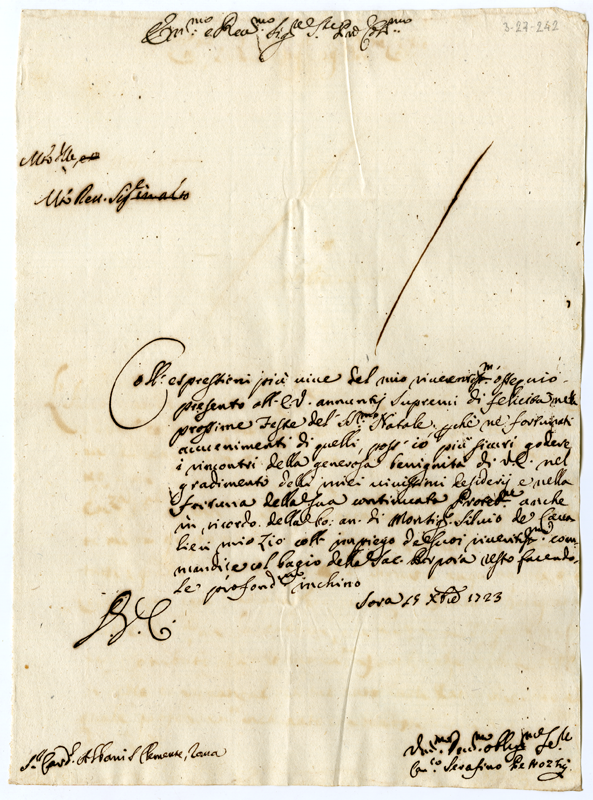 Em.mo e Rev.mo Sig.re S.re P.rõn Col.mo
3-27-242
Mto Ille.
Mto Rev. Sig.
Coll' espressioni più vive del mio riverentis.mo ossequio
presento all' E.V. annuntij supremi di felicità nelle
prossime Feste del SS.mo Natale, p.chè nè fortunati
avvenimenti di quelli, poss' io più sicuri godere
i rincontri della generosa benignità di V.E. nel
gradimento delli miei vivissimi desiderij e nella
fortuna della sua continuata Protett.ne anche
in ricordo della bo: an. di Monsig.r Silvio de Cava
lieri mio Zio coll' impiego de suoi riverit.mi com
mandi; e col bagio della Sac. Porpora resto facendo
le profond.ma inchino
Sora 15 Xbre 1723
D.V.E.
S.r Card. Albani S. Clemente, Roma
Um.mo Dev.mo Oblig.mo Se.re
Serafino Petrozzij